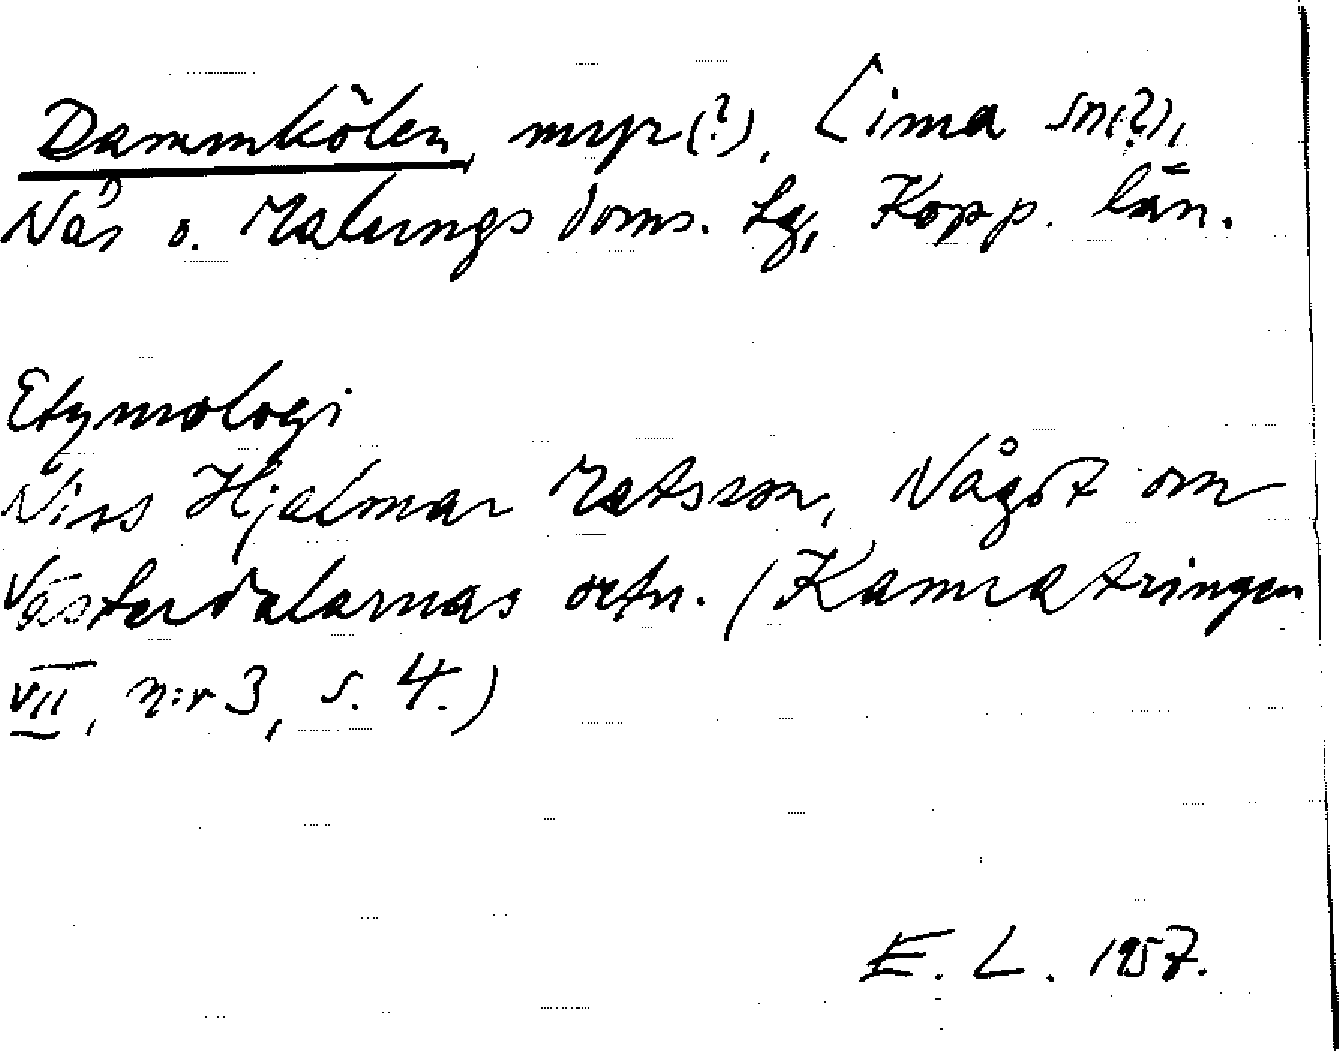 Dammkölen, myr(?), Lima sn(?),
Nås o. Malungs doms. lg, Kopp. län.
Etymologi
Niss Hjalmar Matsson, Något om
Västerdalarnas ortn. (Kamratringen
VII, n:r 3, s. 4.)
E. L. 1957.